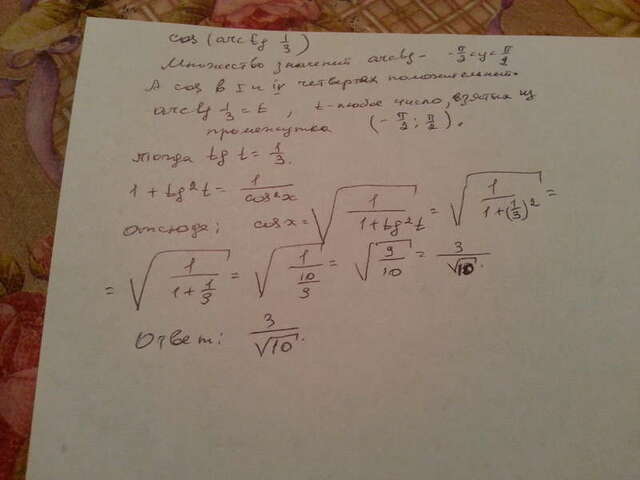 cos (arctg 1/3)
Множество значений arctg - -π/2<y<π/2
А cos в I и IV четвертях положительный.
arctg 1/3 = t, t-любое число, взятых из
промежутка (-π/2; π/2).
Тогда tg t = 1/3.
1 + tg²t = 1/cos²x
Отсюда; cos x = √(1/(1+tg²t)) = √(1/(1+(1/3)²)) =
= √(1/(1+1/9)) = √(1/(10/9)) = √(9/10) = 3/√10.
Ответ: 3/√10.